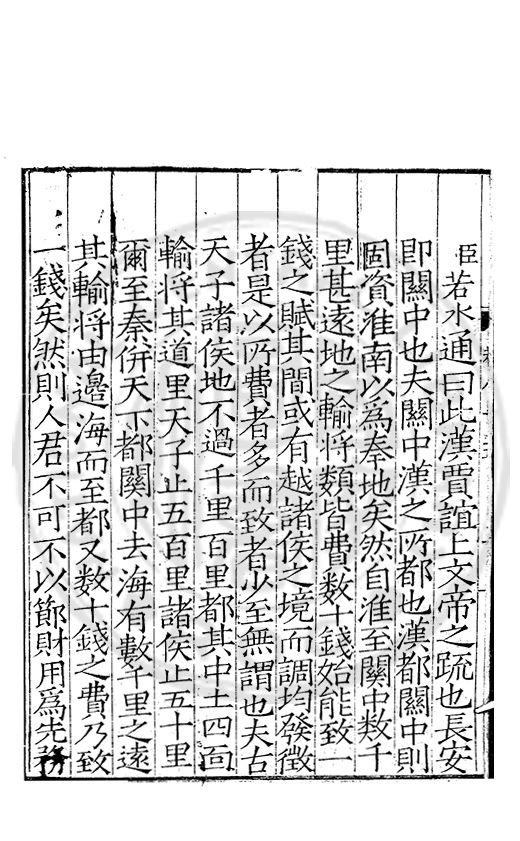 臣若水通曰此漢賈誼上文帝之䟽也長安
即關中也夫關中漢之所都也漢都關中則
固資淮南以為奉地矣然自淮至關中数千
里甚遠地之輸將類皆費数十錢始能致一
錢之賦其間或有越諸侯之境而調均發徵
者是以所費者多而致者少至無謂也夫古
天子諸侯地不過千里百里都其中土四靣
輸將其道里天子止五百里諸侯止五十里
爾至秦併天下都關中去海有數千里之遠
其輸將由邉海而至都又数十錢之費乃致
一錢矣然則人君不可不以節財用為先務